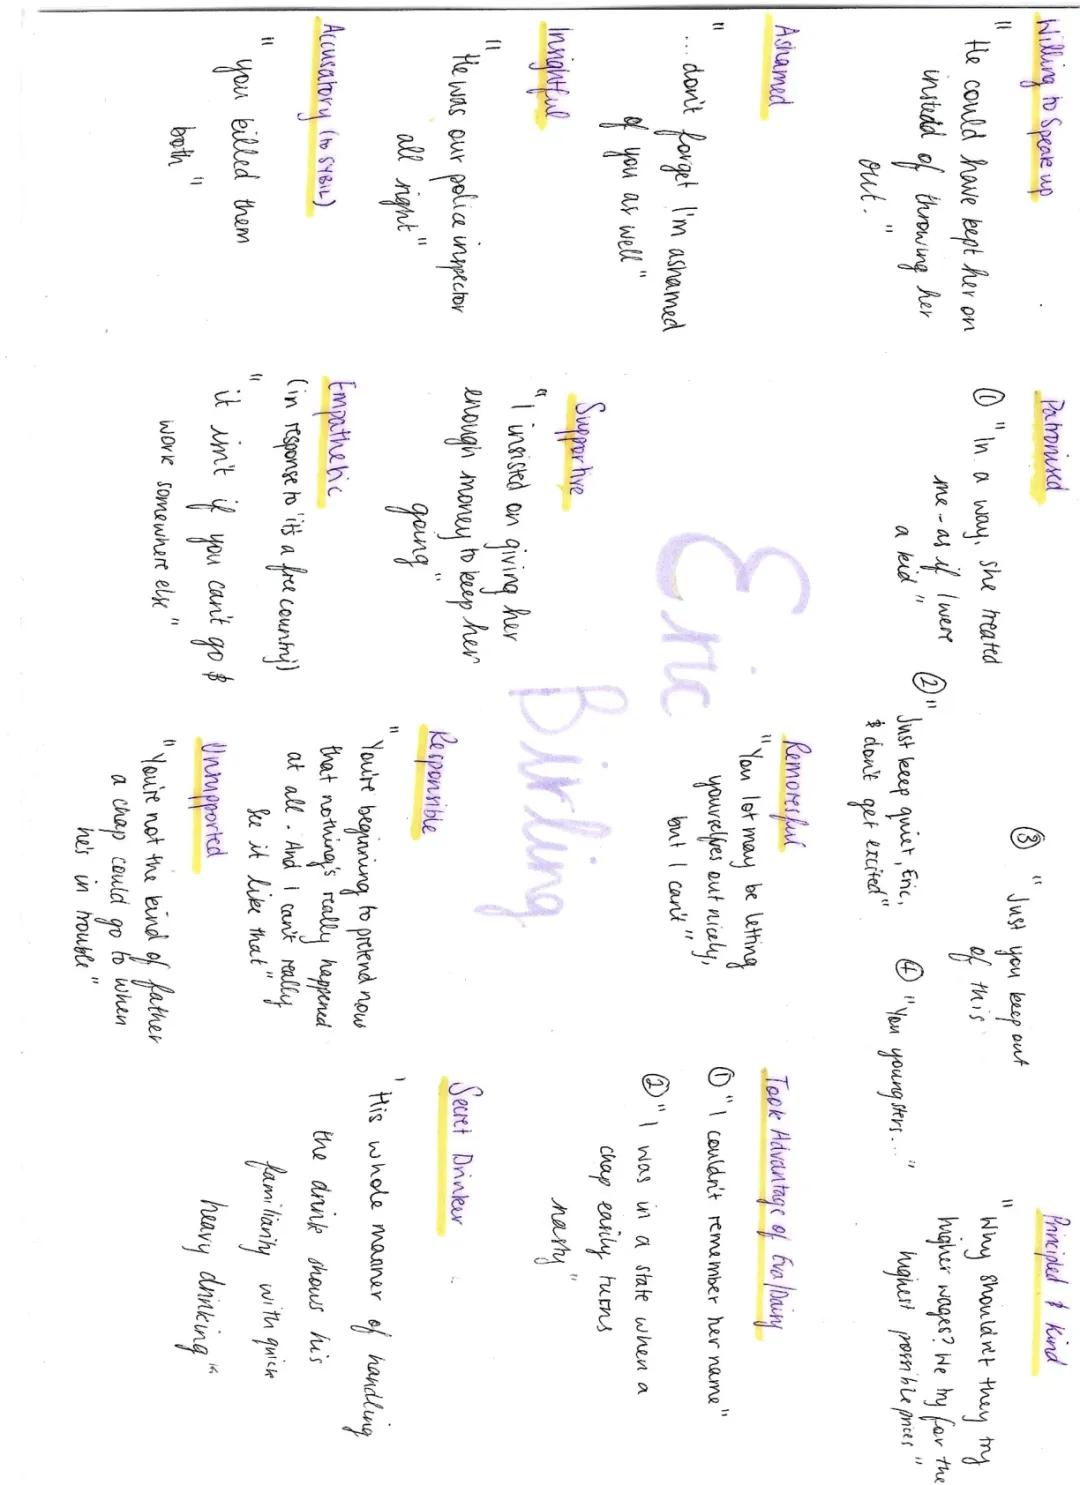 Willing to Speak up
"He could have kept her on
instead of throwing her
out."
Patronised
① "In a way, she treated
me - as if I were
a kid"
② "Just keep quiet, Eric,
& don't get excited"
③ "Just you keep out
of this
④ "You youngsters..."
Principled & Kind
"Why shouldn't they try
higher wages? We try for the
highest possible prices"
Ashamed
"...don't forget I'm ashamed
of you as well"
Insightful
"He was our police inspector
all right"
Accusatory (to SYBIL)
"you killed them
both"
Eric
Birling
Supportive
"I insisted on giving her
enough money to keep her
going"
Empathetic
(in response to 'it's a free country')
"it isn't if you can't go &
work somewhere else"
Remorseful
"You lot may be letting
yourselves out nicely,
but I can't"
Responsible
"You're beginning to pretend now
that nothing's really happened
at all. And I can't really
see it like that"
Unsupported
"You're not the kind of father
a chap could go to when
he's in trouble"
Took Advantage of Eva/Daisy
① "I couldn't remember her name"
② "I was in a state when a
chap easily turns
nasty"
Secret Drinker
'His whole manner of handling
the drink shows his
familiarity with quick
heavy drinking"